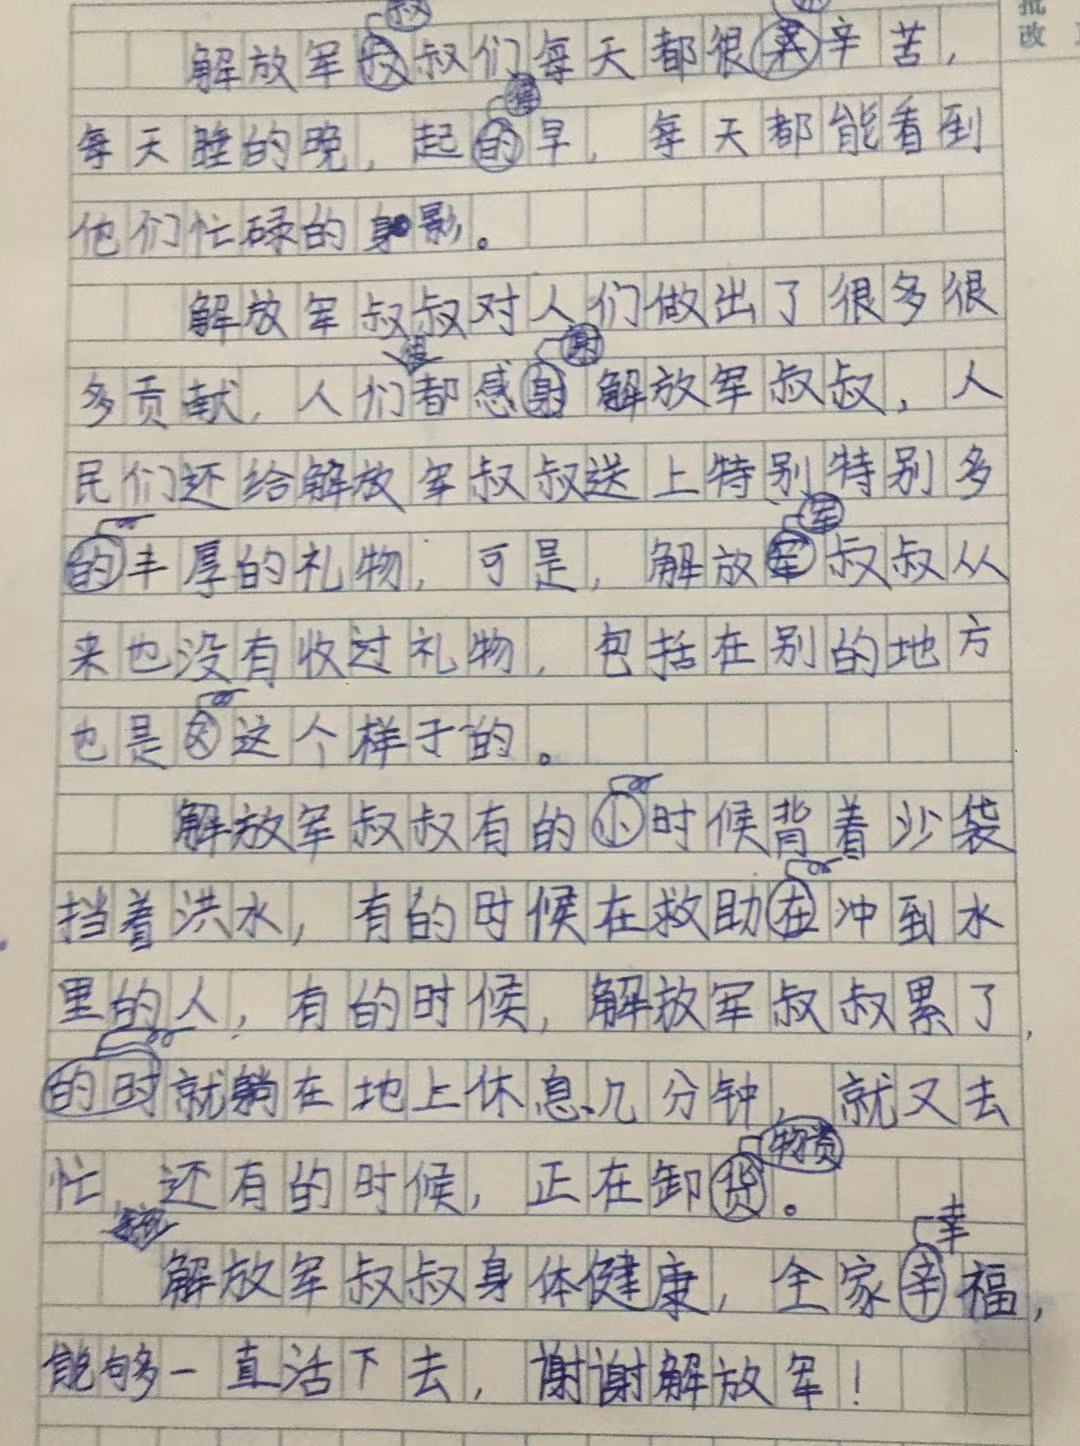 批
改
解放军叔叔们每天都很辛苦，
每天睡的晚，起得早，每天都能看到
他们忙碌的身影。
解放军叔叔对人们做出了很多很
多贡献，人们都感谢解放军叔叔，人
民们还给解放军叔叔送上特别特别多
丰厚的礼物，可是，解放军叔叔从
来也没有收过礼物，包括在别的地方
也是这个样子的。
解放军叔叔有的时候背着沙袋
挡着洪水，有的时候在救助冲到水
里的人，有的时候，解放军叔叔累了，
就躺在地上休息几分钟，就又去
忙，还有的时候，正在卸物资。
解放军叔叔身体健康，全家幸福，
能够一直活下去，谢谢解放军！